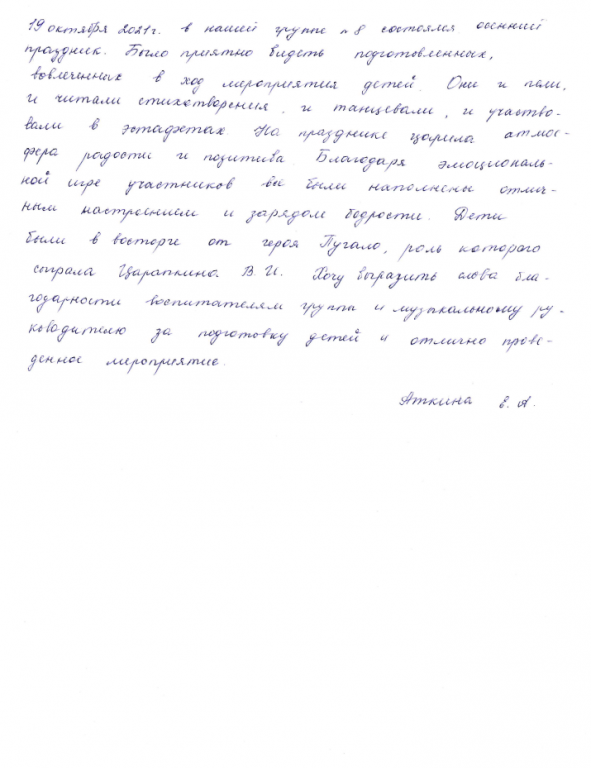 19 октября 2021г. в нашей группе №8 состоялся осенний
праздник. Было приятно видеть подготовленных,
вовлеченных в ход мероприятия детей. Они и пели,
и читали стихотворения, и танцевали, и участво-
вали в эстафетах. На празднике царила атмос-
фера радости и позитива Благодаря эмоциональ-
ной игре участников все были наполнены отлич-
ным настроением и зарядом бодрости. Дети
были в восторге от героя Пугало, роль которого
сыграла Царапкина В.И. Хочу выразить слова бла-
годарности воспитателям группы и музыкальному ру-
ководителю за подготовку детей и отлично прове-
денное мероприятие.
Аткина Е.А.